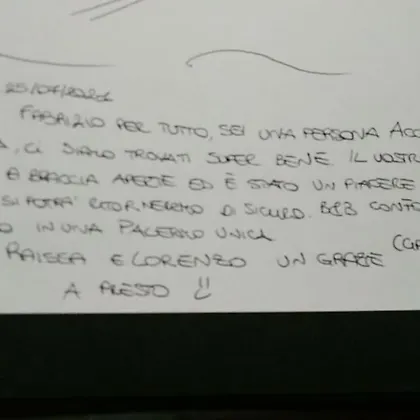 25/07/2021
FABRIZIO PER TUTTO, SEI UNA PERSONA ACC
CI SIAMO TROVATI SUPER BENE. IL VOSTR
A BRACCIA APERTE ED È STATO UN PIACERE
SI POTRÀ RITORNEREMO DI SICURO. B&B CONFO
O IN UNA PALERMO UNICA
(GR
RAISEA E LORENZO UN GRANDE
A PRESTO